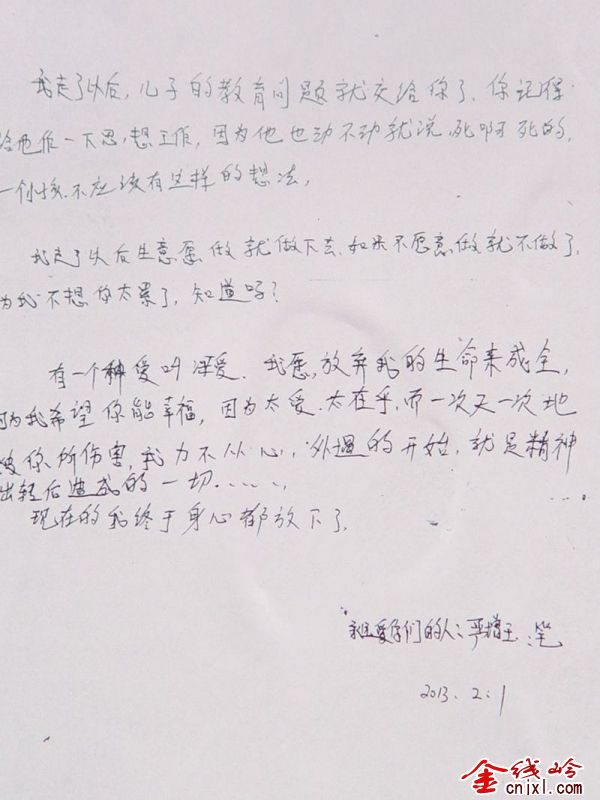 我走了以后,儿子的教育问题就交给你了.你记得
给他作一下思想工作,因为他也动不动就说死啊死的,
一个小孩不应该有这样的想法,
我走了以后生意愿做就做下去.如果不愿意做就不做了,
为我不想你太累了,知道吗?
有一个种爱叫深爱.我愿,放弃我的生命来成全,
因为我希望你能幸福,因为太爱.太在乎,而一次又一次地
被你所伤害,我力不从心,外遇的开始,就是精神
出轻后造成的一切......,
现在的我终于身心都放下了,
永远爱你们的人:严增玉 笔
2013.2.1
金线岭
cnjxl.com